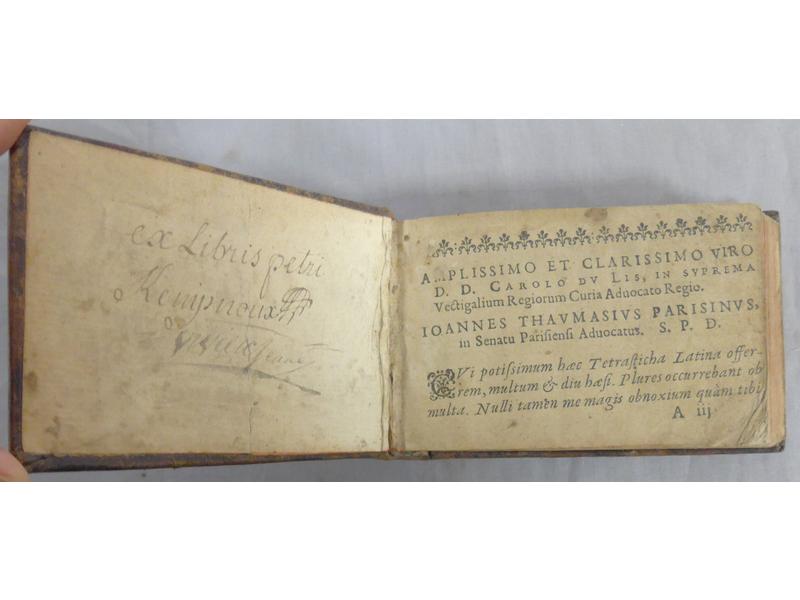 ex Libris petri
AMPLISSIMO ET CLARISSIMO VIRO
D. D. CAROLO DV LIS, IN SVPREMA
Vectigalium Regiorum Curia Aduocato Regio.
IOANNES THAVMASIVS PARISINVS,
in Senatu Parisiensi Aduocatus. S. P. D.
CVi potißimum hæc Tetrasticha Latina offer-
rem, multum & diu hæsi. Plures occurrebant ob
multa. Nulli tamen me magis obnoxium quàm tibi
A iij